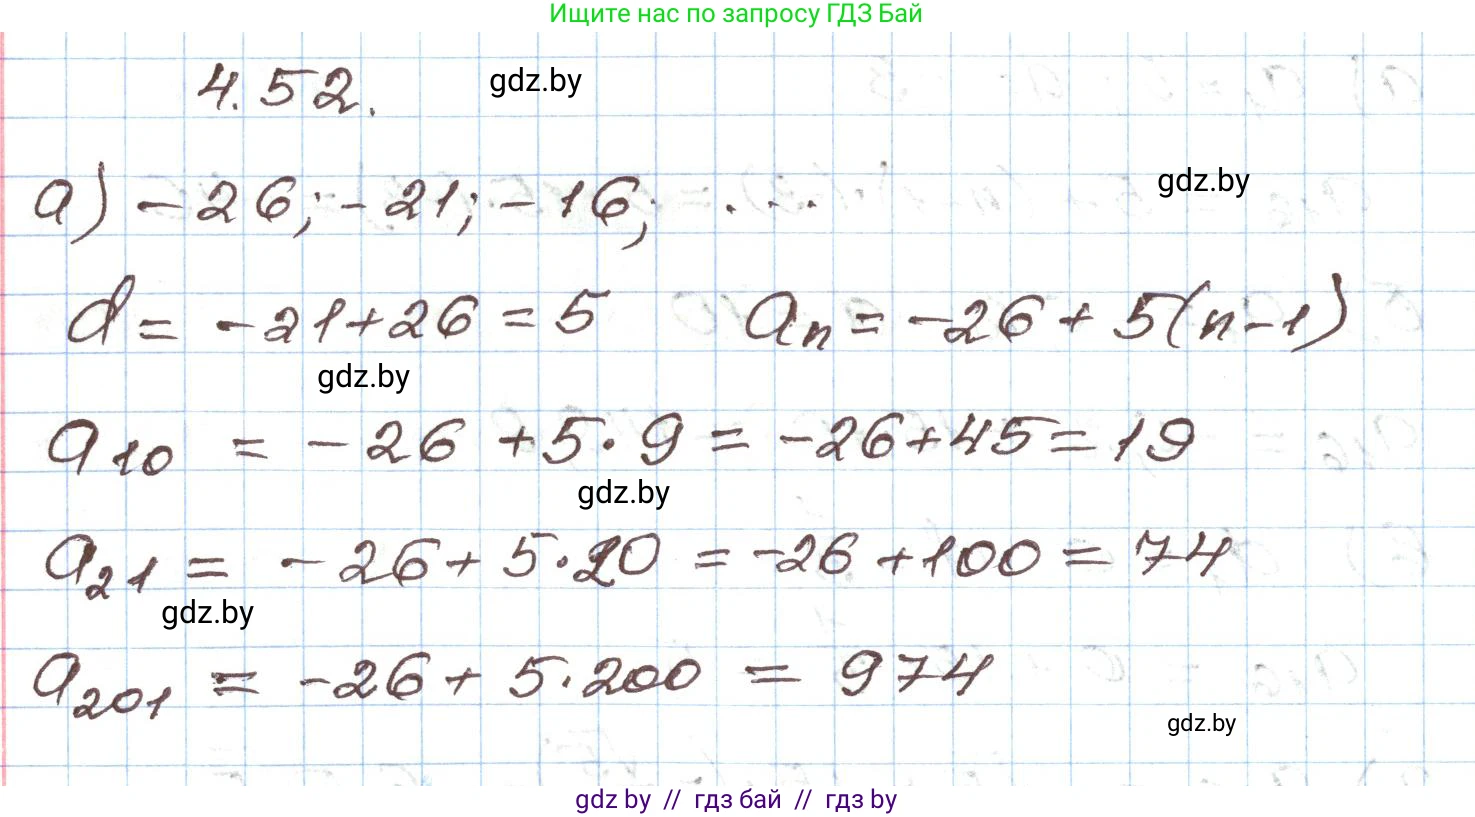 Ищите нас по запросу ГДЗ Бай
4.52. gdz.by
а) -26; -21; -16; ... gdz.by
d = -21+26 = 5 aₙ = -26 + 5(n-1)
gdz.by
a₁₀ = -26 + 5·9 = -26+45 = 19
gdz.by
a₂₁ = -26 + 5·20 = -26 + 100 = 74
gdz.by
a₂₀₁ = -26 + 5·200 = 974
gdz.by
gdz by // гдз бай // гдз by